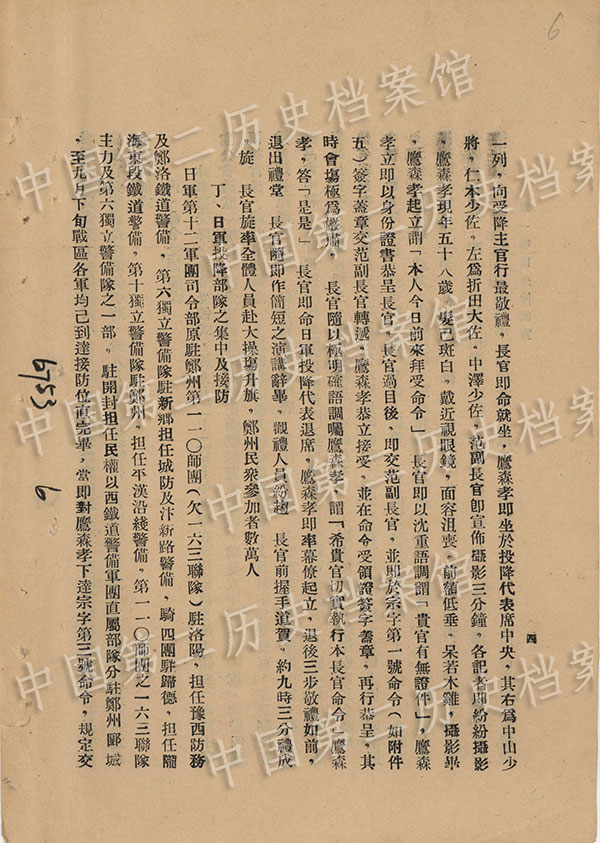 6
四
一列，向受降主官行最敬禮，長官即命就坐，鷹森孝即坐於投降代表席中央，其右爲中山少
將，仁本少佐，左爲折田大佐，中澤少佐，范副長官卽宣佈攝影三分鐘，各記者即紛紛攝影
，鷹森孝現年五十八歲，髮已斑白，戴近視眼鏡，面容沮喪，前額低垂，呆若木雞，攝影畢
，鷹森孝起立謂「本人今日前來拜受命令」長官即以沈重語調謂「貴官有無證件」，鷹森
孝立即以身份證書恭呈長官，長官過目後，即交范副長官，並即於宗字第一號命令（如附件
五）簽字蓋章交范副長官轉遞，鷹森孝恭立接受，並在命令受領證簽字蓋章，再行恭呈，其
時會塲極爲嚴肅，長官隨以極明確語調囑鷹森孝，謂「希貴官切實執行本長官命令，鷹森
孝，答「是是」長官即命日軍投降代表退席，鷹森孝即率幕僚起立，退後三步敬禮如前，
退出禮堂　長官隨即作簡短之演講辭畢，觀禮人員紛趨　長官前握手道賀，約九時三分禮成
。旋　長官旋率全體人員赴大操塲升旗，鄭州民衆參加者數萬人
丁、日軍投降部隊之集中及接防
日軍第十二軍團司令部原駐鄭州第一一〇師團（欠一六三聯隊）駐洛陽，担任豫西防務
及鄭洛鐵道警備，第六獨立警備隊駐新鄉担任城防及汴新路警備，騎四團駐歸德　担任隴
海東段鐵道警備，第十獨立警備隊駐鄭州，担任平漢沿綫警備，第一一〇師團之一六三聯隊
主力及第六獨立警備隊之一部，駐開封担任民權以西鐵道警備軍團直屬部隊分駐鄭州郾城
，至九月下旬戰區各軍均已到達接防位直完畢，當即對鷹森孝下達宗字第三號命令，規定交
6753
6
中国第二历史档案馆
中国第二历史档案馆
中国第二历史档案馆
中国第二历史档案馆
中国第二历史档案馆